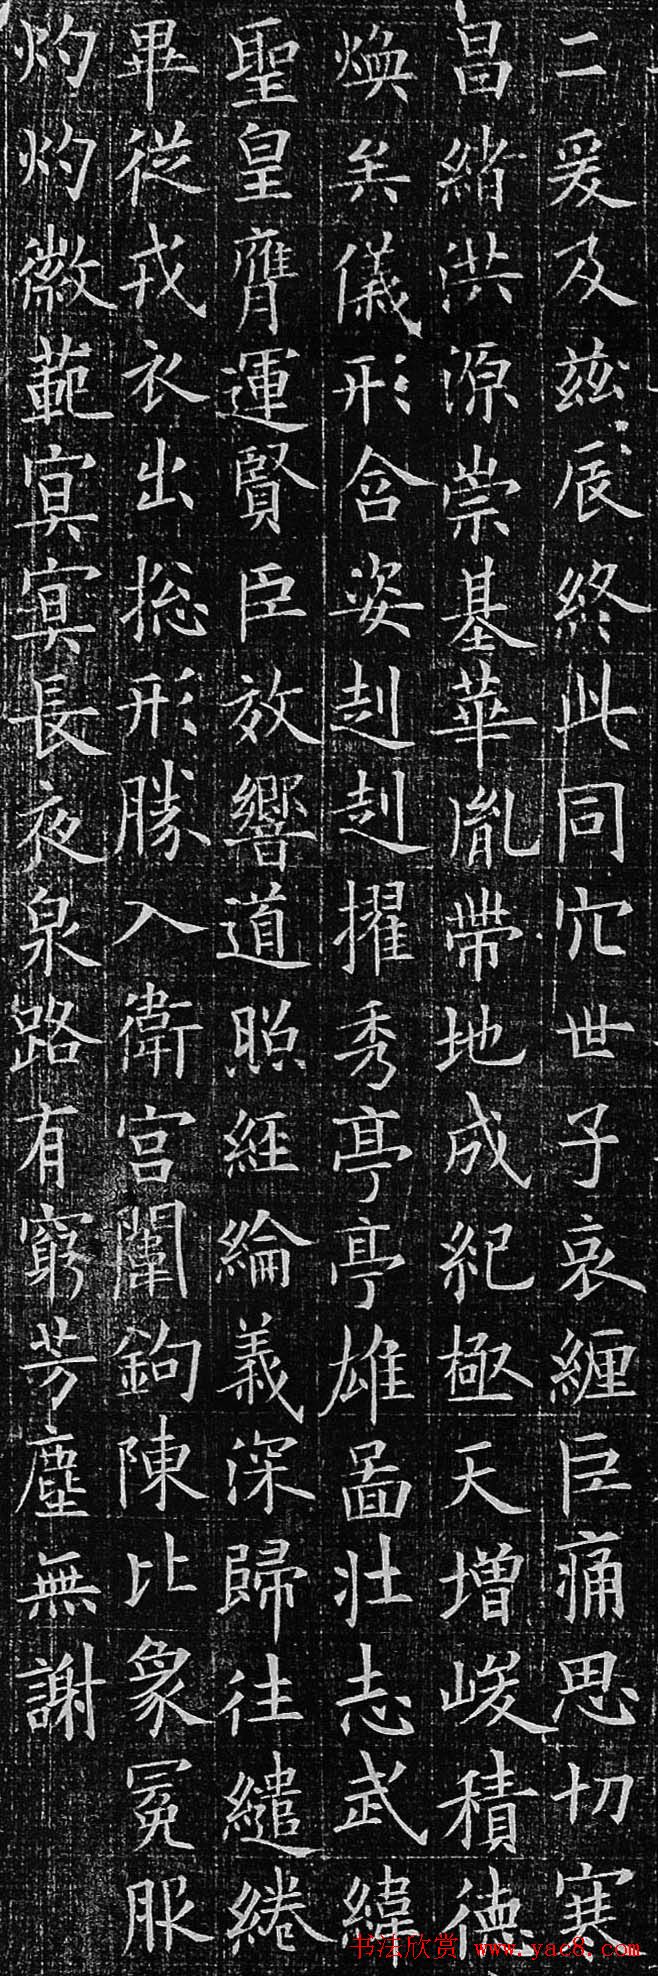 二爰及茲辰終此同穴世子哀纏巨痛思切寒
昌緒洪源崇基華胤帶地成紀極天增峻積德
煥矣儀形含姿赳赳擢秀亭亭雄啚壯志武緯
聖皇膺運賢臣效響道照經綸義深歸往繾綣
畢從戎衣出捴形勝入衛宮闈鉤陳比象冕服
灼灼徽範寘寘長夜泉路有窮芳塵無謝
书法欣赏 www.yac8.com